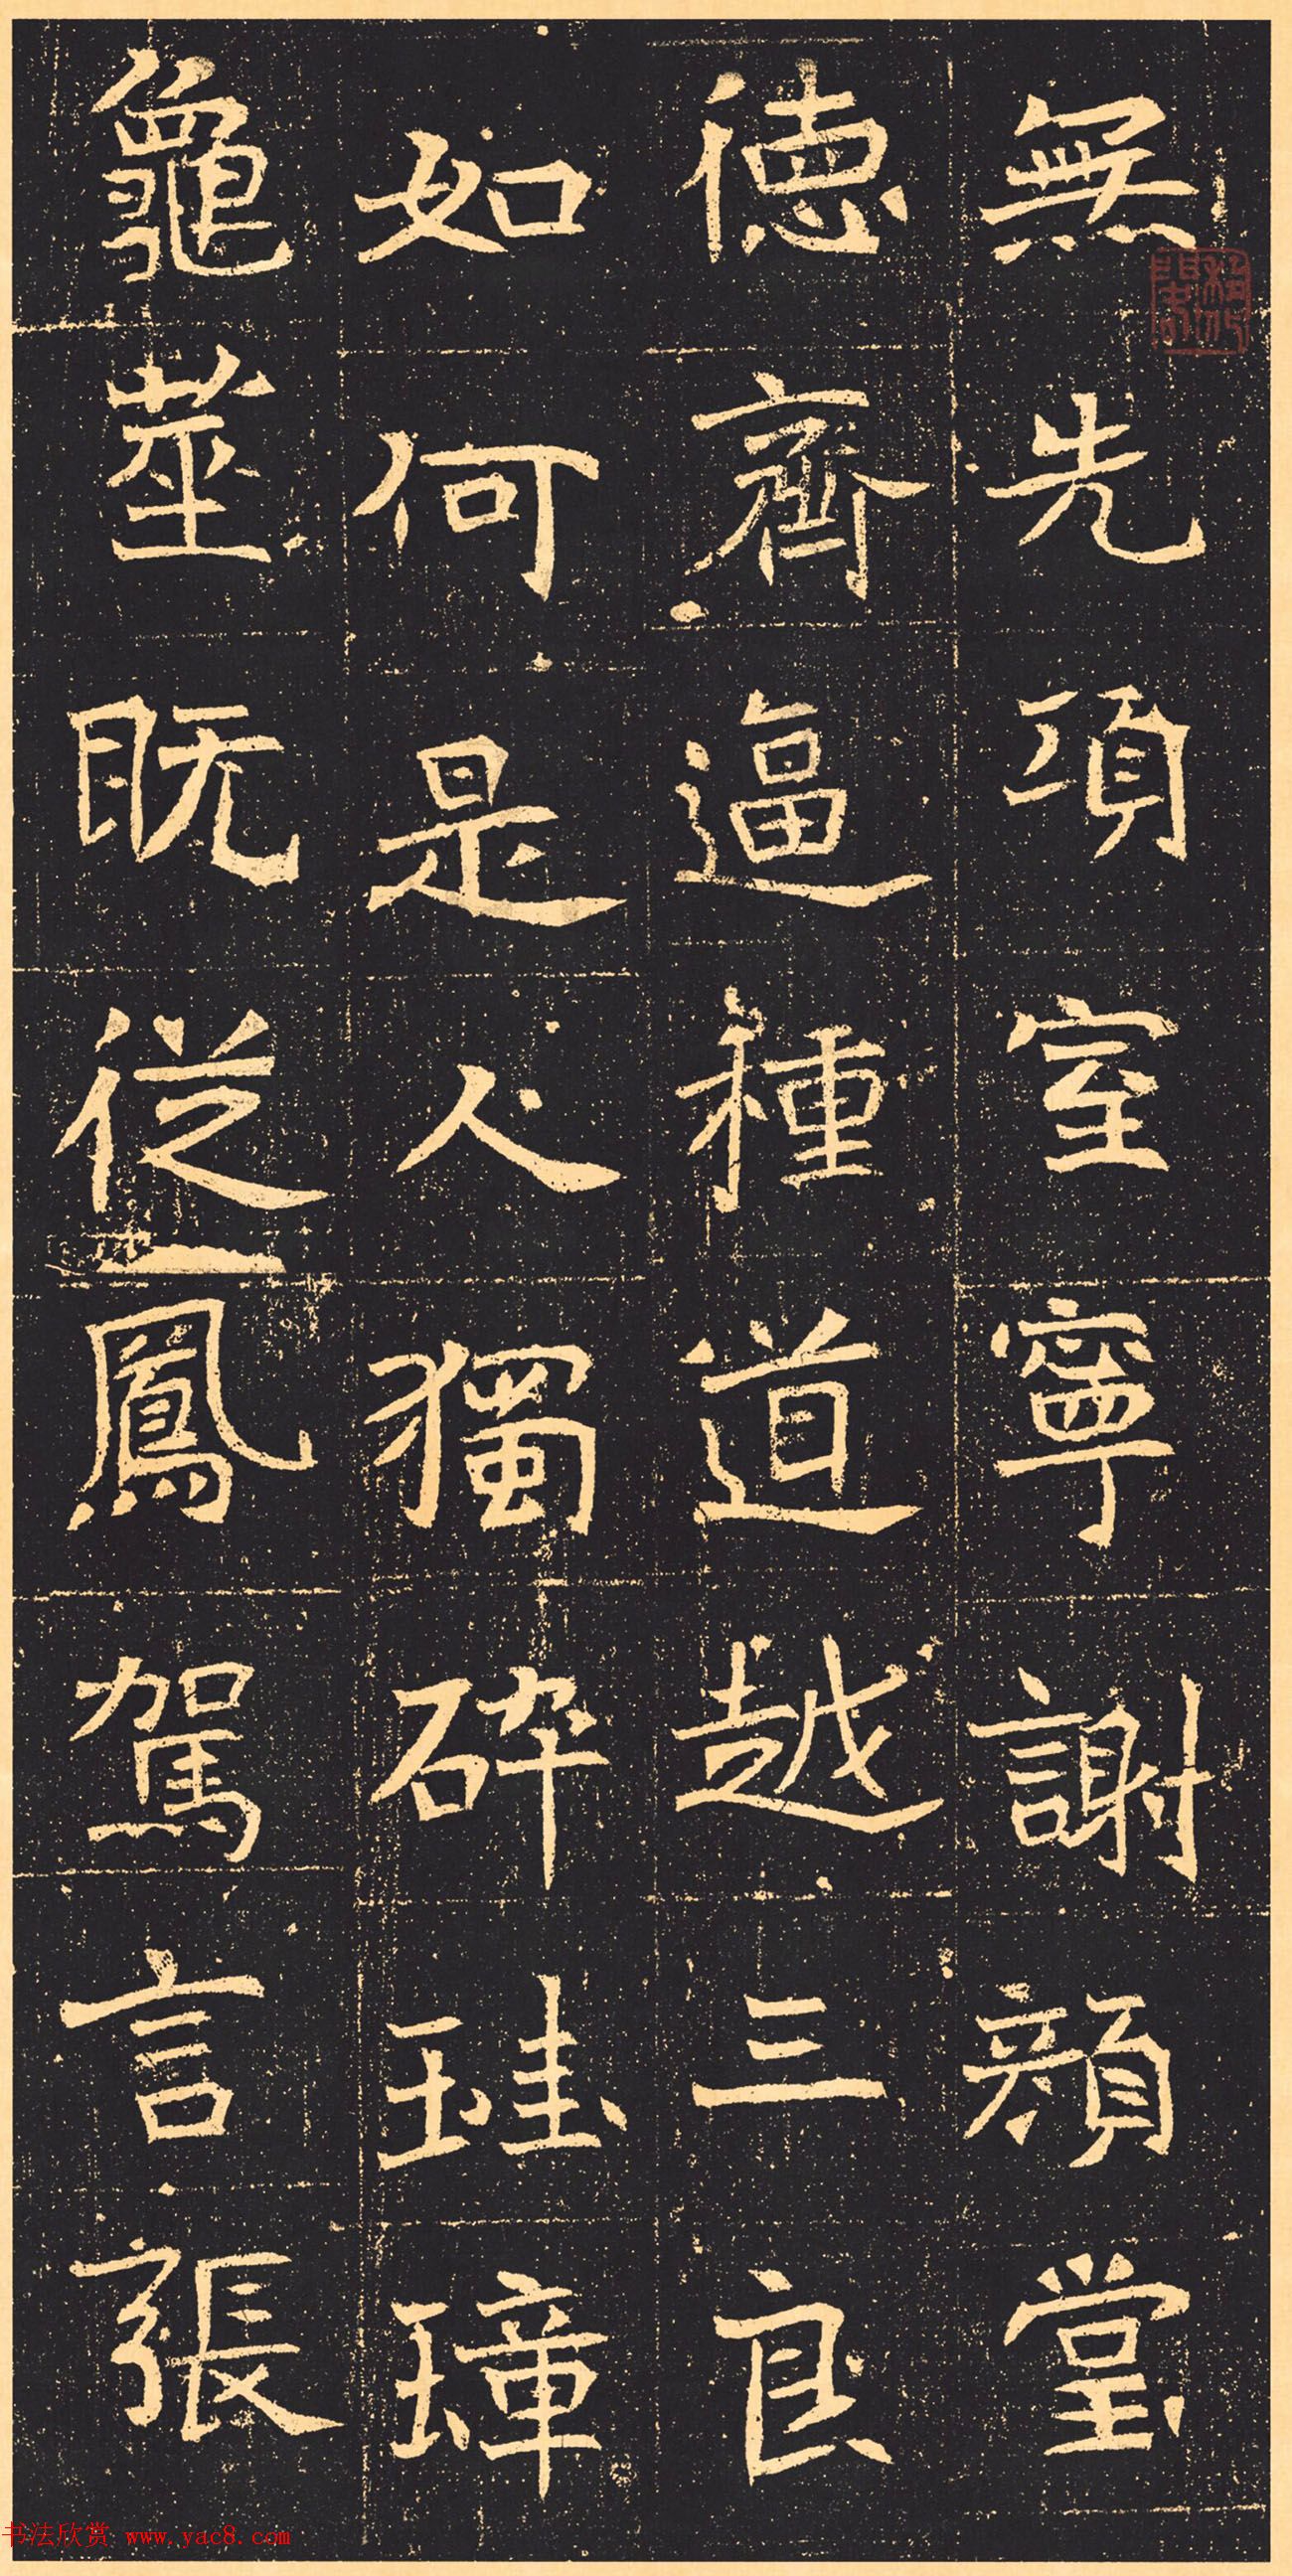 無先項室寧謝顔堂
德齊逼種道越三良
如何是人獨碎珪璋
龜莁既從鳳駕言張
书法欣赏 www.yac8.com